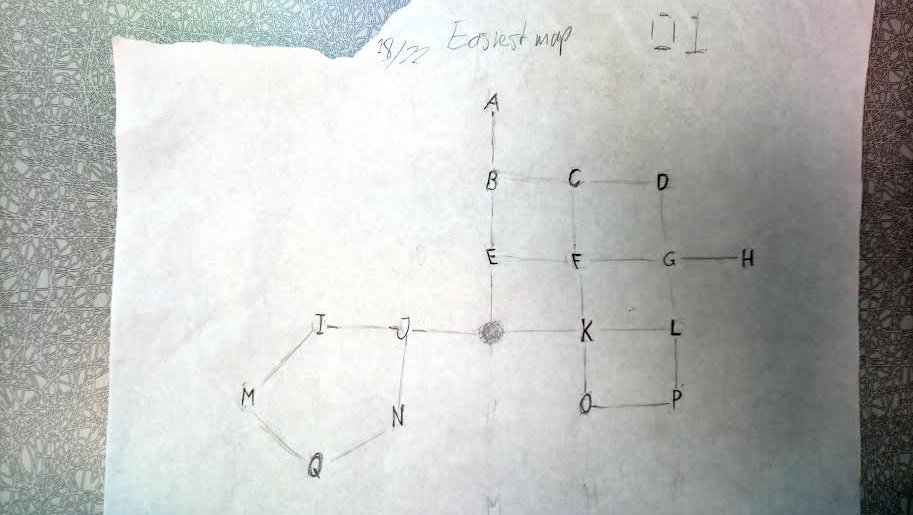 18/22 Easiest map 01
A
B C D
E F G H
I J K L
M N O P
Q